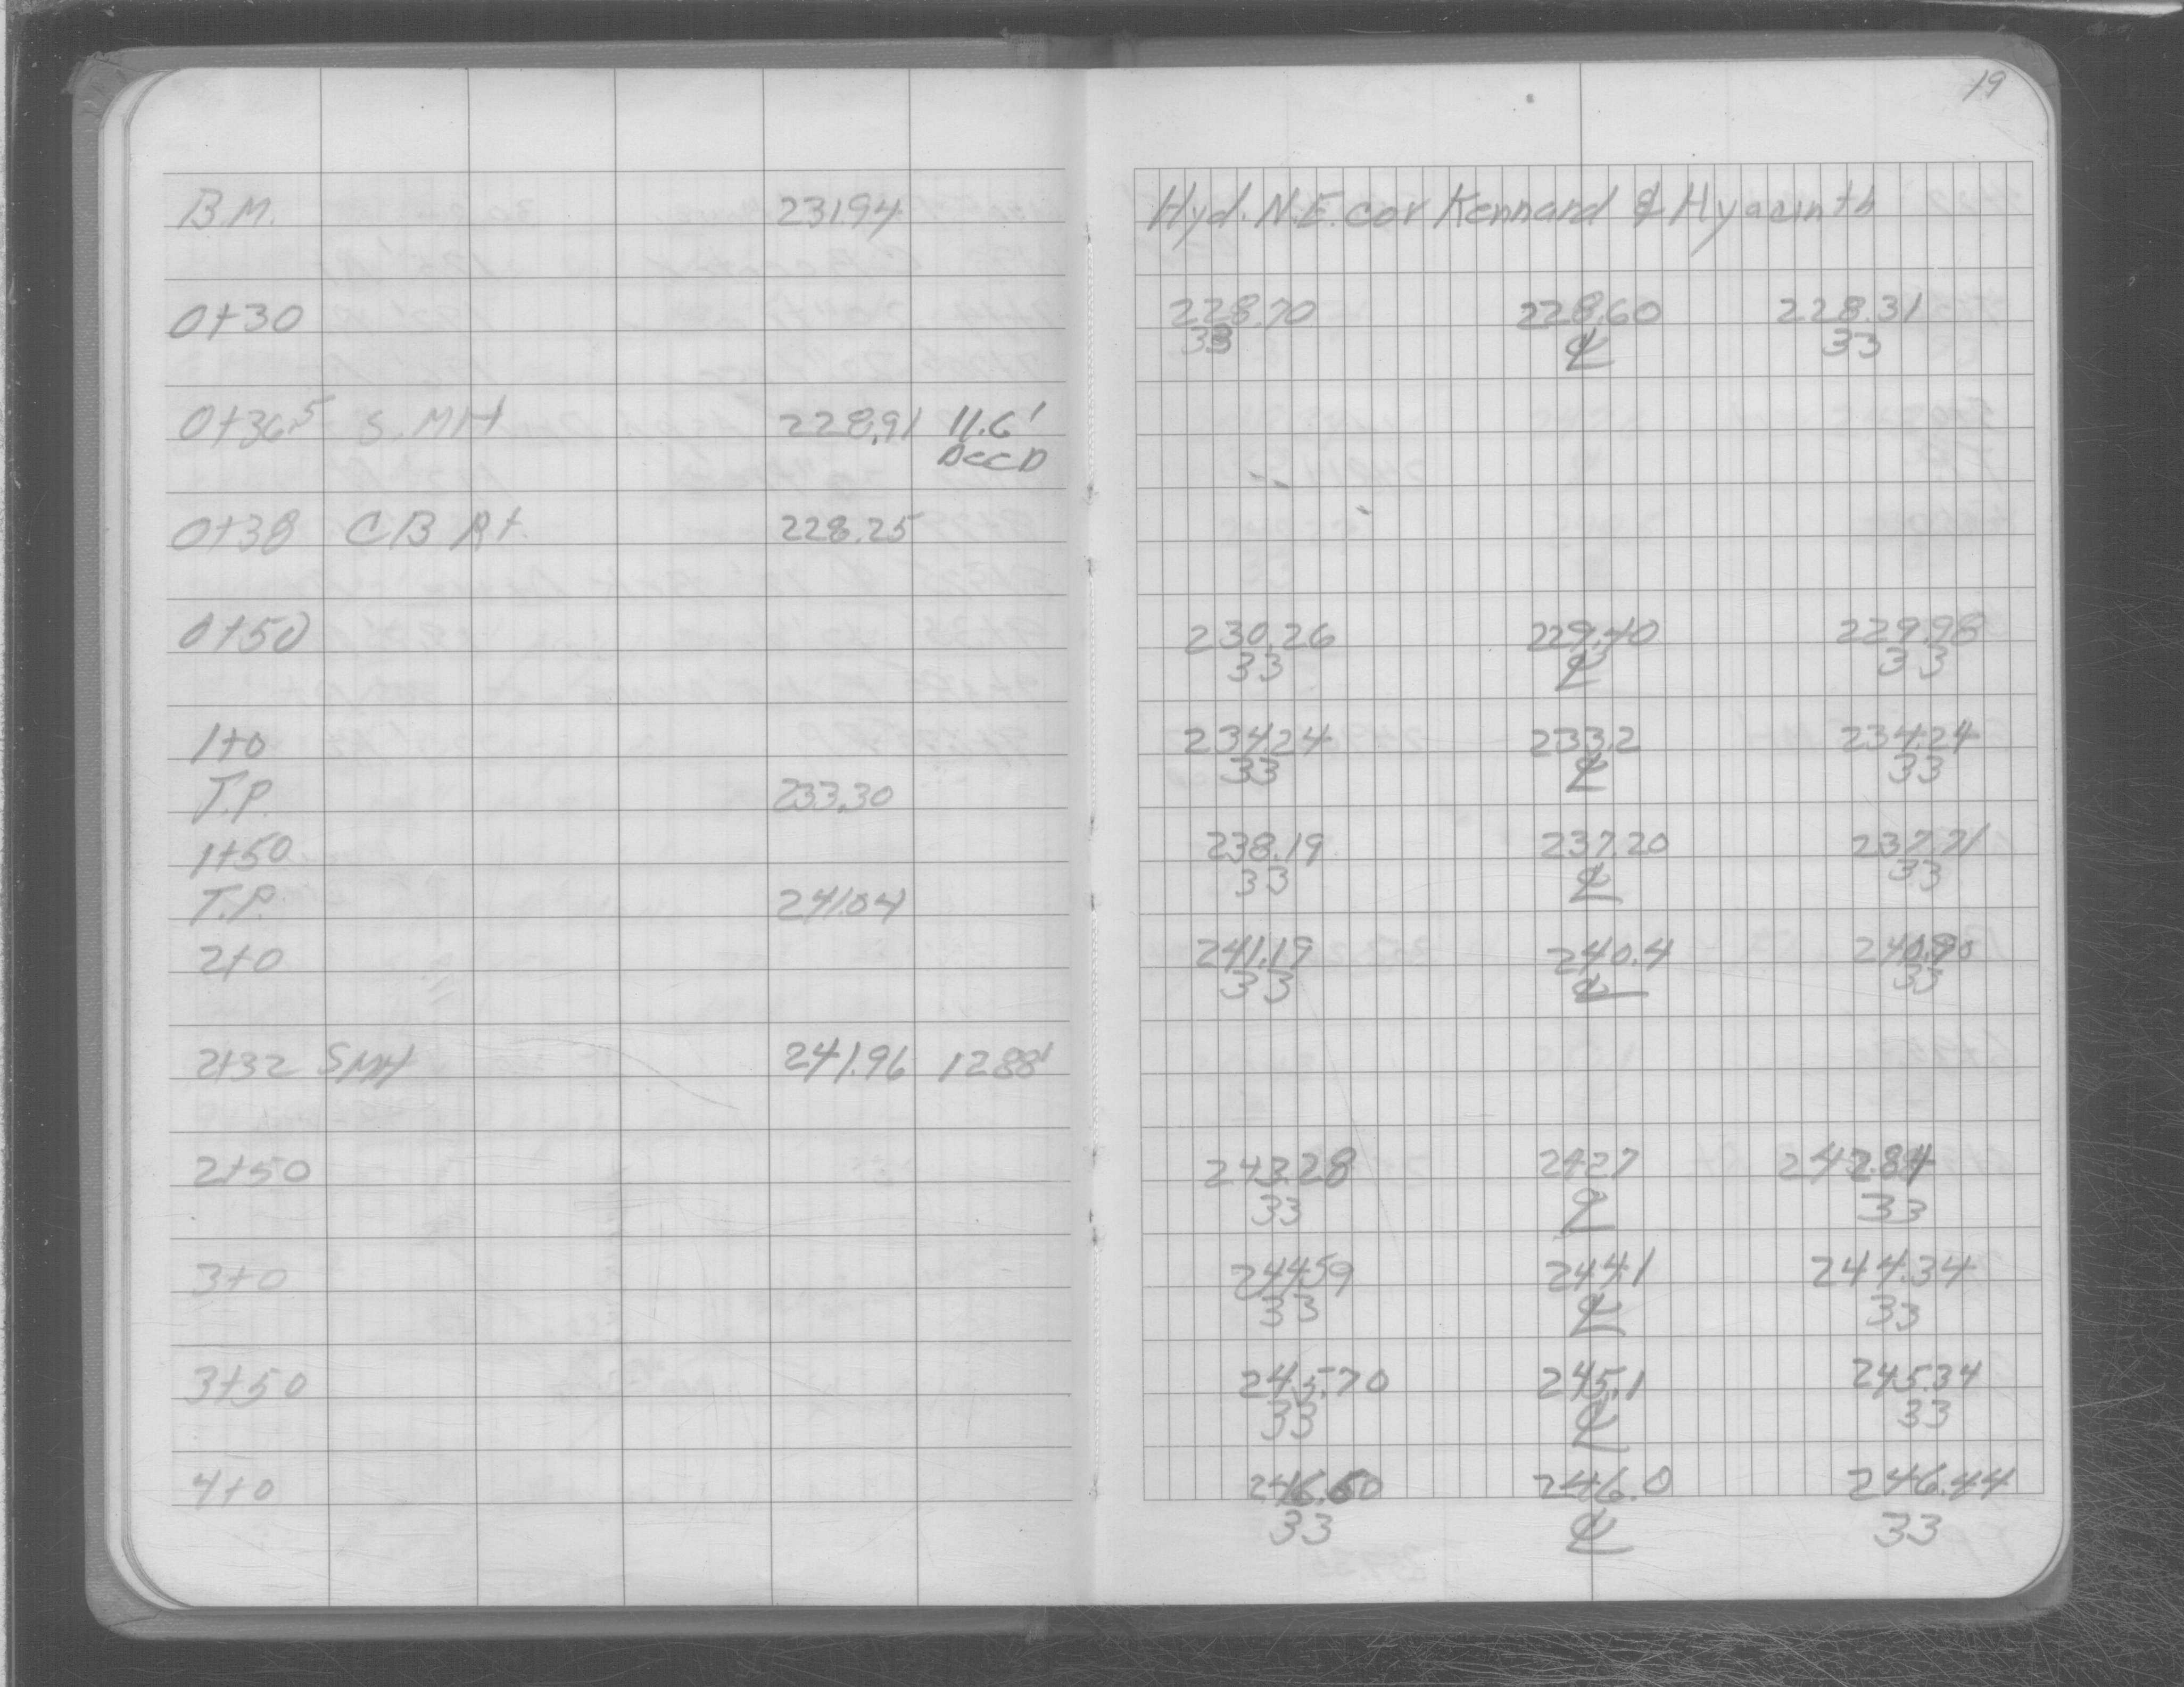 19
B.M. 231.94 Hyd. N.E. cor Kennard & Hyacinth
0+30 228.70 228.60 228.31
33 ℄ 33
0+36⁵ S. MH 228.91 11.6'
Deep
0+38 CB Rt. 228.25
0+50 230.26 229.40 229.98
33 ℄ 33
1+0 234.24 233.2 234.24
33 ℄ 33
T.P. 233.30
1+50 238.19 237.20 237.71
33 ℄ 33
T.P. 241.04
2+0 241.19 240.4 240.90
33 ℄ 33
2+32 SMH 241.96 12.88'
2+50 243.28 242.7 242.84
33 ℄ 33
3+0 244.59 244.1 244.34
33 ℄ 33
3+50 245.70 245.1 245.34
33 ℄ 33
4+0 246.60 246.0 246.44
33 ℄ 33